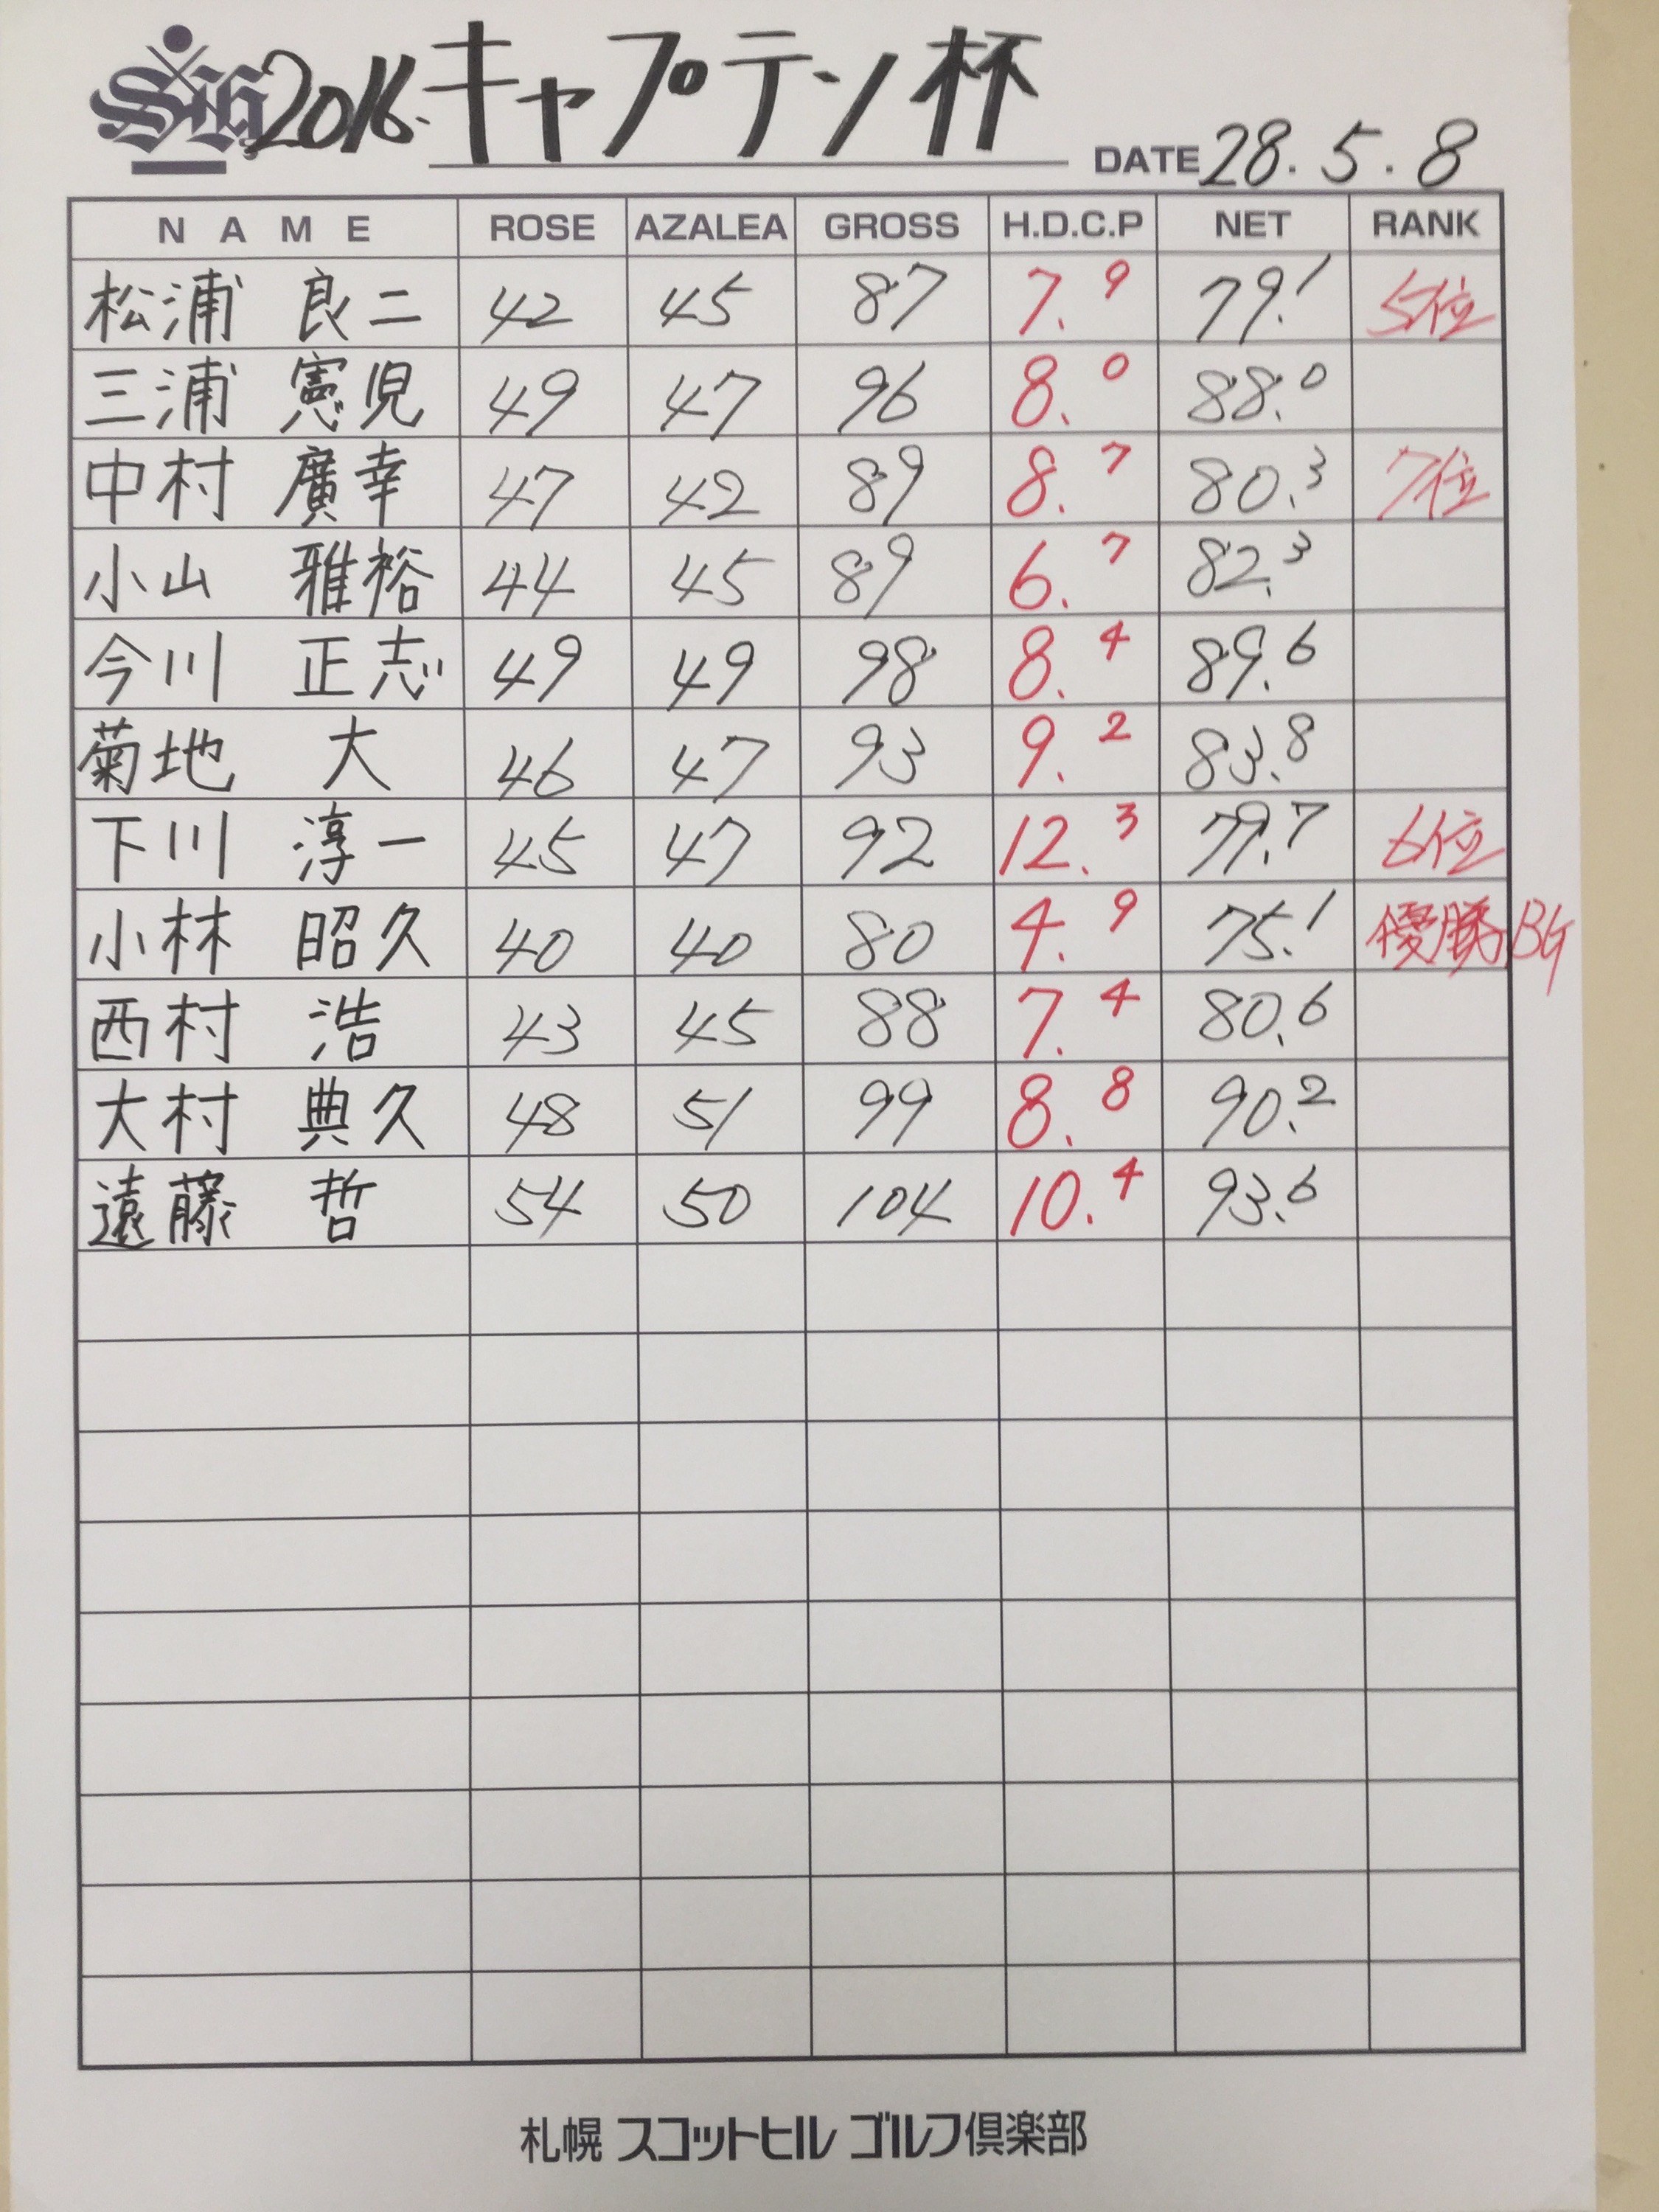 SH 2016. キャプテン杯
DATE 28. 5. 8
NAME ROSE AZALEA GROSS H.D.C.P NET RANK
松浦 良二 42 45 87 7.9 79.1 5位
三浦 憲児 49 47 96 8.0 88.0
中村 廣幸 47 42 89 8.7 80.3 7位
小山 雅裕 44 45 89 6.7 82.3
今川 正志 49 49 98 8.4 89.6
菊地 大 46 47 93 9.2 83.8
下川 淳一 45 47 92 12.3 79.7 6位
小林 昭久 40 40 80 4.9 75.1 優勝 BG
西村 浩 43 45 88 7.4 80.6
大村 典久 48 51 99 8.8 90.2
遠藤 哲 54 50 104 10.4 93.6
札幌 スコットヒル ゴルフ倶楽部